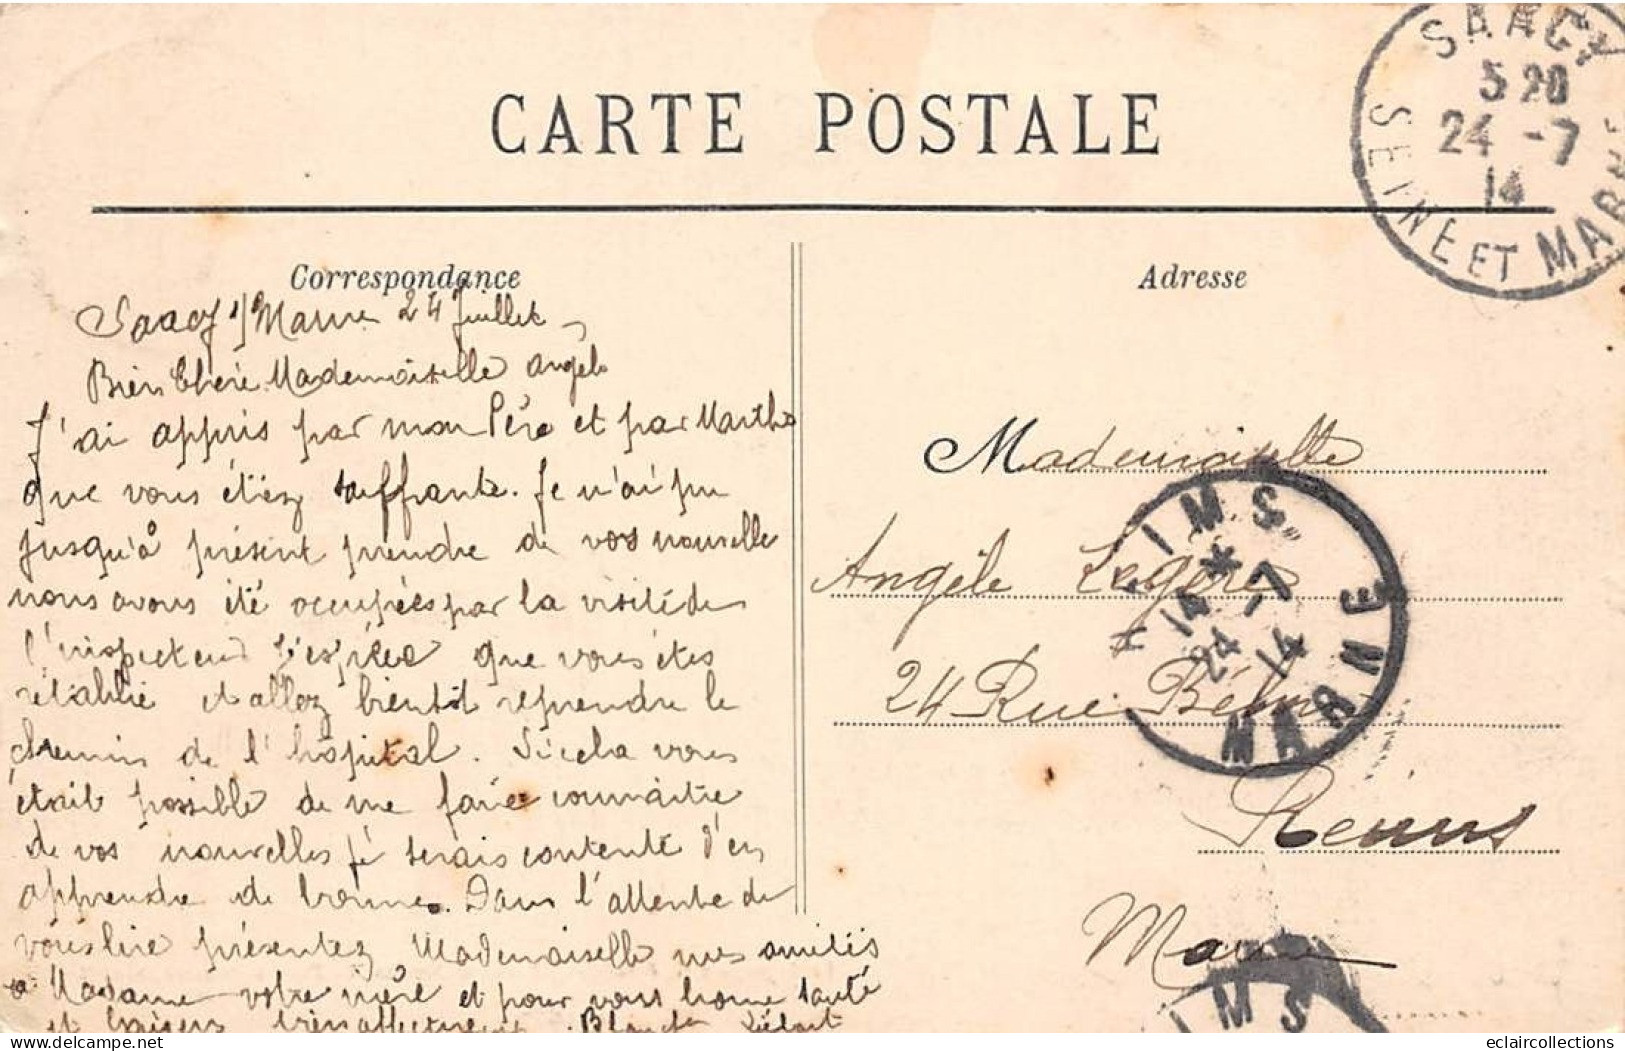 CARTE POSTALE
SAACY
5 20
24 -7
14
SEINE ET MARNE
Correspondance
Saacy s/Marne 24 Juillet
Bien Chère Mademoiselle Angèle
J'ai appris par mon Père et par Marthe
que vous étiez souffrante. Je n'ai pu
jusqu'à présent prendre de vos nouvelle
nous avons été occupées par la visite de
l'inspecteur J'espère que vous êtes
rétablie et allez bientôt reprendre le
chemin de l'hôpital. Si cela vous
était possible de me faire connaître
de vos nouvelles je serais contente d'en
apprendre de bonnes. Dans l'attente de
vous lire présentez Mademoiselle mes amitiés
à Madame votre mère et pour vous bonne santé
et baisers bien affectueux Blanche
Adresse
Mademoiselle
Angèle Legère
24 Rue
Reims
Marne
REIMS
14 *
24 -7
14
MARNE
IMS
eclaircollections